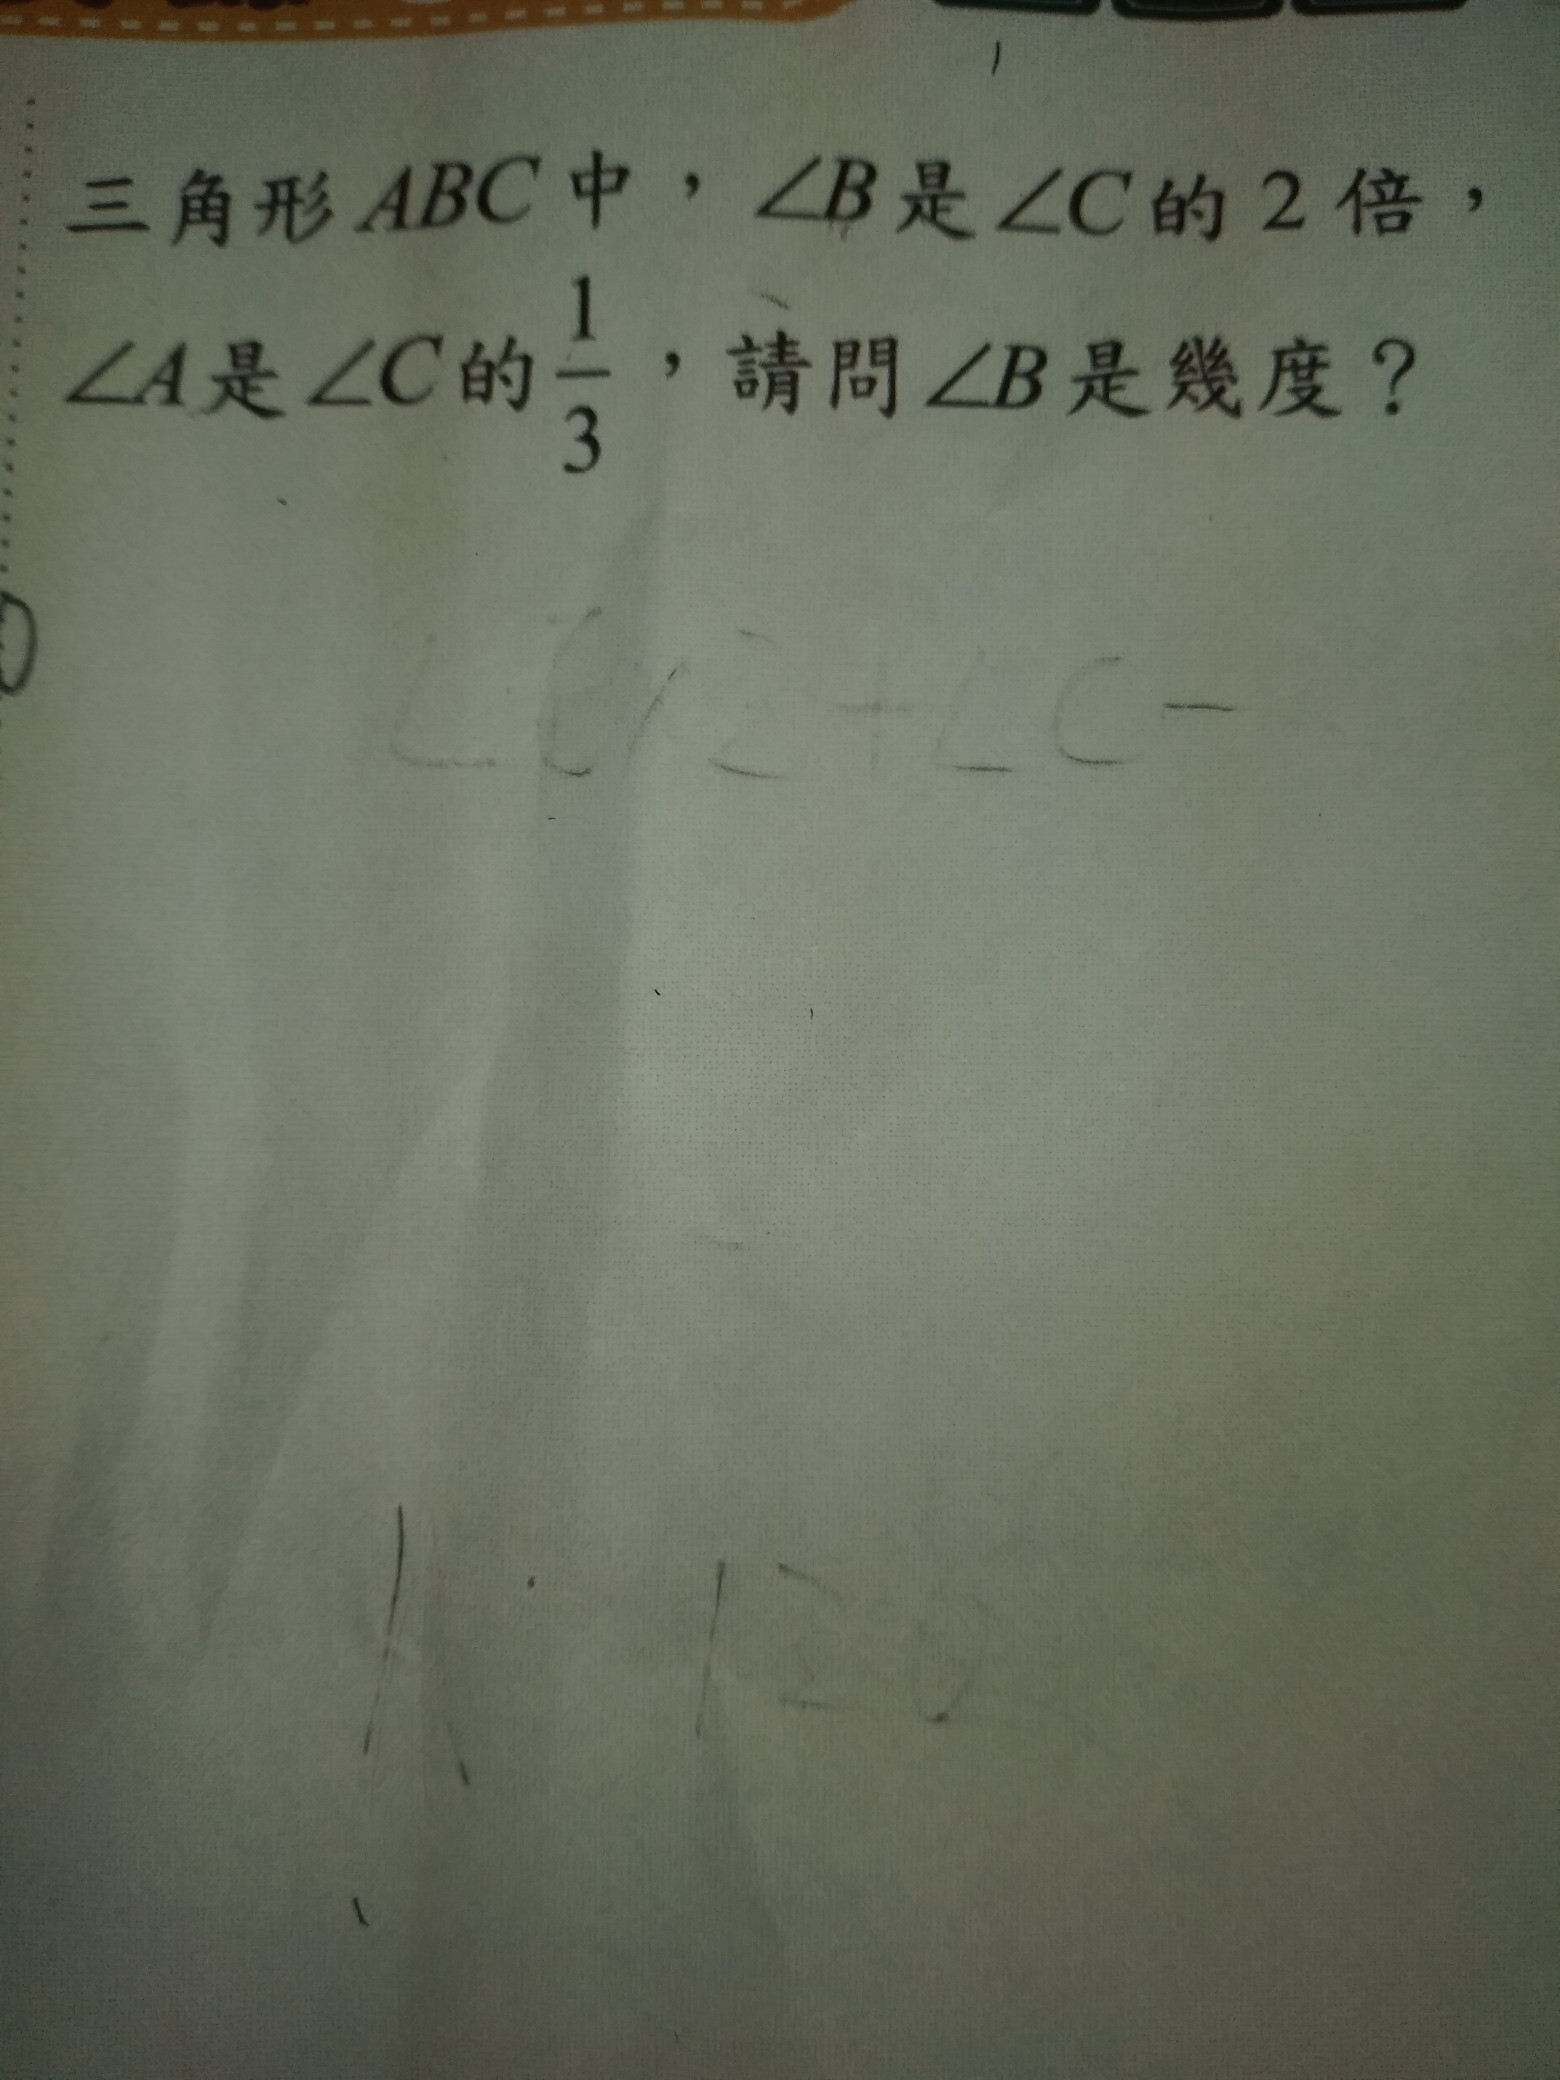 三角形ABC中，∠B是∠C的2倍，
∠A是∠C的1/3，請問∠B是幾度？